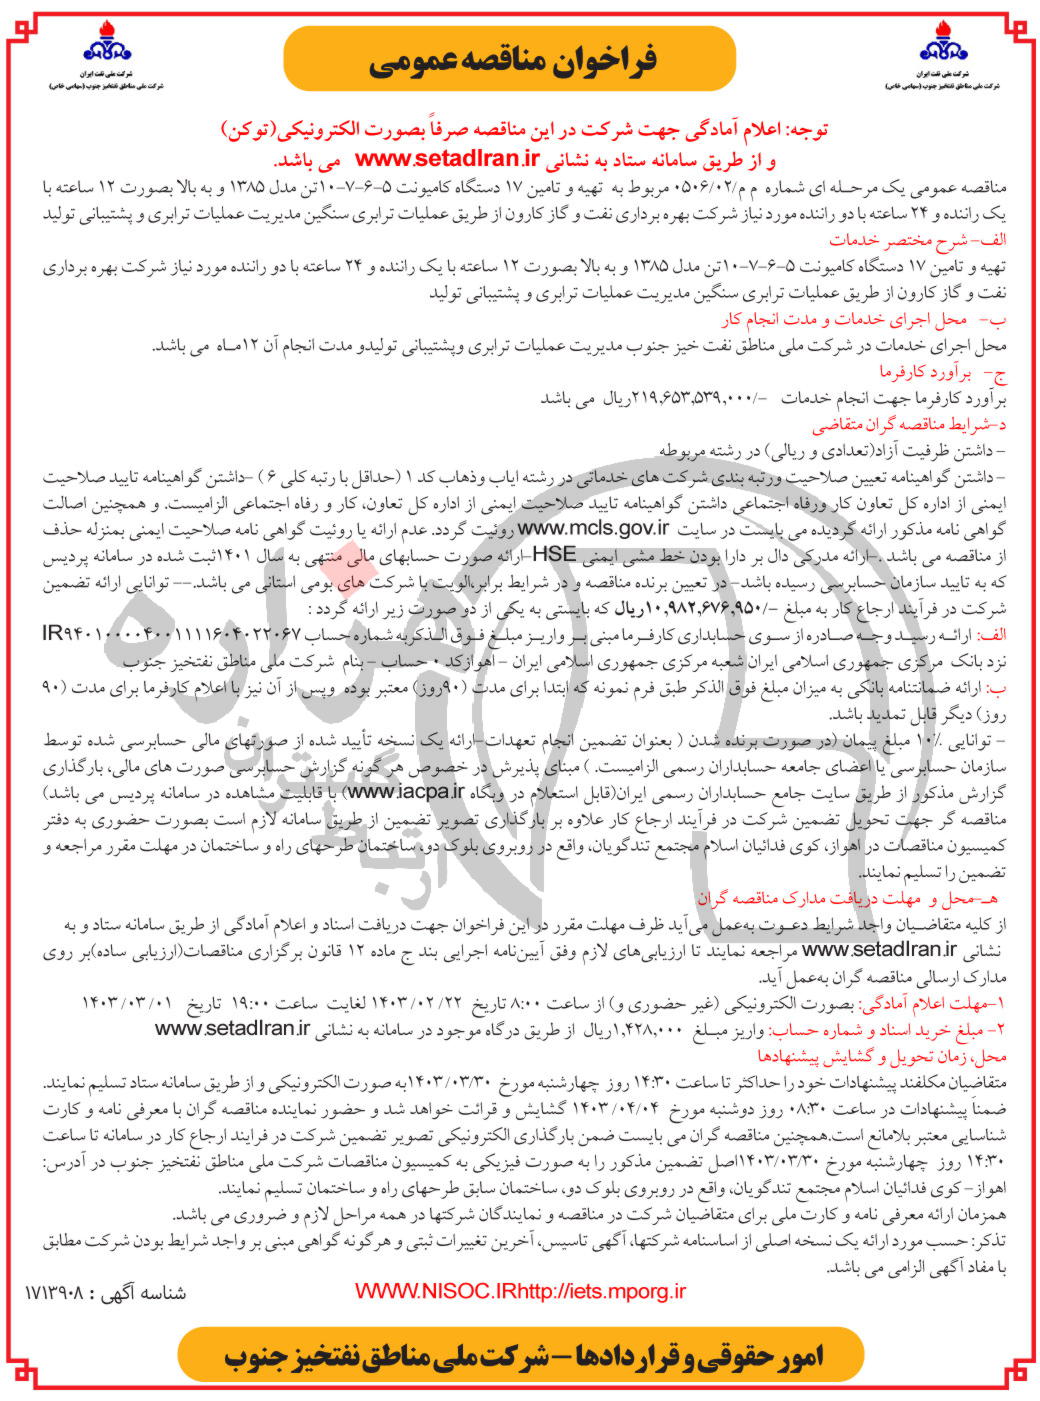 فراخوان مناقصه عمومی
شرکت ملی نفت ایران
شرکت ملی مناطق نفتخیز جنوب (سهامی خاص)
شرکت ملی نفت ایران
شرکت ملی مناطق نفتخیز جنوب (سهامی خاص)
توجه: اعلام آمادگی جهت شرکت در این مناقصه صرفاً بصورت الکترونیکی(توکن)
و از طریق سامانه ستاد به نشانی www.setadIran.ir می باشد.
مناقصه عمومی یک مرحله ای شماره م م/۰۵۰۶/۰۲ مربوط به تهیه و تامین ۱۷ دستگاه کامیونت ۵-۶-۷-۱۰تن مدل ۱۳۸۵ و به بالا بصورت ۱۲ ساعته با
یک راننده و ۲۴ ساعته با دو راننده مورد نیاز شرکت بهره برداری نفت و گاز کارون از طریق عملیات ترابری سنگین مدیریت عملیات ترابری و پشتیبانی تولید
الف- شرح مختصر خدمات
تهیه و تامین ۱۷ دستگاه کامیونت ۵-۶-۷-۱۰تن مدل ۱۳۸۵ و به بالا بصورت ۱۲ ساعته با یک راننده و ۲۴ ساعته با دو راننده مورد نیاز شرکت بهره برداری
نفت و گاز کارون از طریق عملیات ترابری سنگین مدیریت عملیات ترابری و پشتیبانی تولید
ب- محل اجرای خدمات و مدت انجام کار
محل اجرای خدمات در شرکت ملی مناطق نفت خیز جنوب مدیریت عملیات ترابری وپشتیبانی تولیدو مدت انجام آن ۱۲ماه می باشد.
ج- برآورد کارفرما
برآورد کارفرما جهت انجام خدمات -/۲۱۹,۶۵۳,۵۳۹,۰۰۰ریال می باشد
د-شرایط مناقصه گران متقاضی
- داشتن ظرفیت آزاد(تعدادی و ریالی) در رشته مربوطه
- داشتن گواهینامه تعیین صلاحیت ورتبه بندی شرکت های خدماتی در رشته ایاب وذهاب کد ۱ (حداقل با رتبه کلی ۶ ) -داشتن گواهینامه تایید صلاحیت
ایمنی از اداره کل تعاون کار ورفاه اجتماعی داشتن گواهینامه تایید صلاحیت ایمنی از اداره کل تعاون، کار و رفاه اجتماعی الزامیست. و همچنین اصالت
گواهی نامه مذکور ارائه گردیده می بایست در سایت www.mcls.gov.ir روئیت گردد. عدم ارائه یا روئیت گواهی نامه صلاحیت ایمنی بمنزله حذف
از مناقصه می باشد .-ارائه مدرکی دال بر دارا بودن خط مشی ایمنی HSE-ارائه صورت حسابهای مالی منتهی به سال ۱۴۰۱ثبت شده در سامانه پردیس
که به تایید سازمان حسابرسی رسیده باشد- در تعیین برنده مناقصه و در شرایط برابر،الویت با شرکت های بومی استانی می باشد.-- توانایی ارائه تضمین
شرکت در فرآیند ارجاع کار به مبلغ -/۱۰,۹۸۲,۶۷۶,۹۵۰ریال که بایستی به یکی از دو صورت زیر ارائه گردد :
الف: ارائه رسید وجه صادره از سوی حسابداری کارفرما مبنی بر واریز مبلغ فوق الذکربه شماره حساب IR۹۴۰۱۰۰۰۰۴۰۰۱۱۱۱۶۰۴۰۲۲۰۶۷
نزد بانک مرکزی جمهوری اسلامی ایران شعبه مرکزی جمهوری اسلامی ایران - اهوازکد ۰ حساب - بنام شرکت ملی مناطق نفتخیز جنوب
ب: ارائه ضمانتنامه بانکی به میزان مبلغ فوق الذکر طبق فرم نمونه که ابتدا برای مدت (۹۰روز) معتبر بوده وپس از آن نیز با اعلام کارفرما برای مدت (۹۰
روز) دیگر قابل تمدید باشد.
- توانایی ۱۰٪ مبلغ پیمان (در صورت برنده شدن ( بعنوان تضمین انجام تعهدات-ارائه یک نسخه تأیید شده از صورتهای مالی حسابرسی شده توسط
سازمان حسابرسی یا اعضای جامعه حسابداران رسمی الزامیست. ) مبنای پذیرش در خصوص هرگونه گزارش حسابرسی صورت های مالی، بارگذاری
گزارش مذکور از طریق سایت جامع حسابداران رسمی ایران(قابل استعلام در وبگاه www.iacpa.ir) با قابلیت مشاهده در سامانه پردیس می باشد)
مناقصه گر جهت تحویل تضمین شرکت در فرآیند ارجاع کار علاوه بر بارگذاری تصویر تضمین از طریق سامانه لازم است بصورت حضوری به دفتر
کمیسیون مناقصات در اهواز، کوی فدائیان اسلام مجتمع تندگویان، واقع در روبروی بلوک دو، ساختمان طرحهای راه و ساختمان در مهلت مقرر مراجعه و
تضمین را تسلیم نمایند.
هـ-محل و مهلت دریافت مدارک مناقصه گران
از کلیه متقاضیان واجد شرایط دعوت به‌عمل می‌آید ظرف مهلت مقرر در این فراخوان جهت دریافت اسناد و اعلام آمادگی از طریق سامانه ستاد و به
نشانی www.setadIran.ir مراجعه نمایند تا ارزیابی‌های لازم وفق آیین‌نامه اجرایی بند ج ماده ۱۲ قانون برگزاری مناقصات(ارزیابی ساده)بر روی
مدارک ارسالی مناقصه گران به‌عمل آید.
۱-مهلت اعلام آمادگی: بصورت الکترونیکی (غیر حضوری و) از ساعت ۸:۰۰ تاریخ ۱۴۰۳/۰۲/۲۲ لغایت ساعت ۱۹:۰۰ تاریخ ۱۴۰۳/۰۳/۰۱
۲- مبلغ خرید اسناد و شماره حساب: واریز مبلغ ۱,۴۲۸,۰۰۰ریال از طریق درگاه موجود در سامانه به نشانی www.setadIran.ir
محل، زمان تحویل و گشایش پیشنهادها
متقاضیان مکلفند پیشنهادات خود را حداکثر تا ساعت ۱۴:۳۰ روز چهارشنبه مورخ ۱۴۰۳/۰۳/۳۰به صورت الکترونیکی و از طریق سامانه ستاد تسلیم نمایند.
ضمناً پیشنهادات در ساعت ۰۸:۳۰ روز دوشنبه مورخ ۱۴۰۳/۰۴/۰۴ گشایش و قرائت خواهد شد و حضور نماینده مناقصه گران با معرفی نامه و کارت
شناسایی معتبر بلامانع است.همچنین مناقصه گران می بایست ضمن بارگذاری الکترونیکی تصویر تضمین شرکت در فرایند ارجاع کار در سامانه تا ساعت
۱۴:۳۰ روز چهارشنبه مورخ ۱۴۰۳/۰۳/۳۰اصل تضمین مذکور را به صورت فیزیکی به کمیسیون مناقصات شرکت ملی مناطق نفتخیز جنوب در آدرس:
اهواز-کوی فدائیان اسلام مجتمع تندگویان، واقع در روبروی بلوک دو، ساختمان سابق طرحهای راه و ساختمان تسلیم نمایند.
همزمان ارائه معرفی نامه و کارت ملی برای متقاضیان شرکت در مناقصه و نمایندگان شرکتها در همه مراحل لازم و ضروری می باشد.
تذکر: حسب مورد ارائه یک نسخه اصلی از اساسنامه شرکتها، آگهی تاسیس، آخرین تغییرات ثبتی و هرگونه گواهی مبنی بر واجد شرایط بودن شرکت مطابق
با مفاد آگهی الزامی می باشد.
WWW.NISOC.IRhttp://iets.mporg.ir
شناسه آگهی : ۱۷۱۳۹۰۸
امور حقوقی و قراردادها – شرکت ملی مناطق نفتخیز جنوب
هزاره